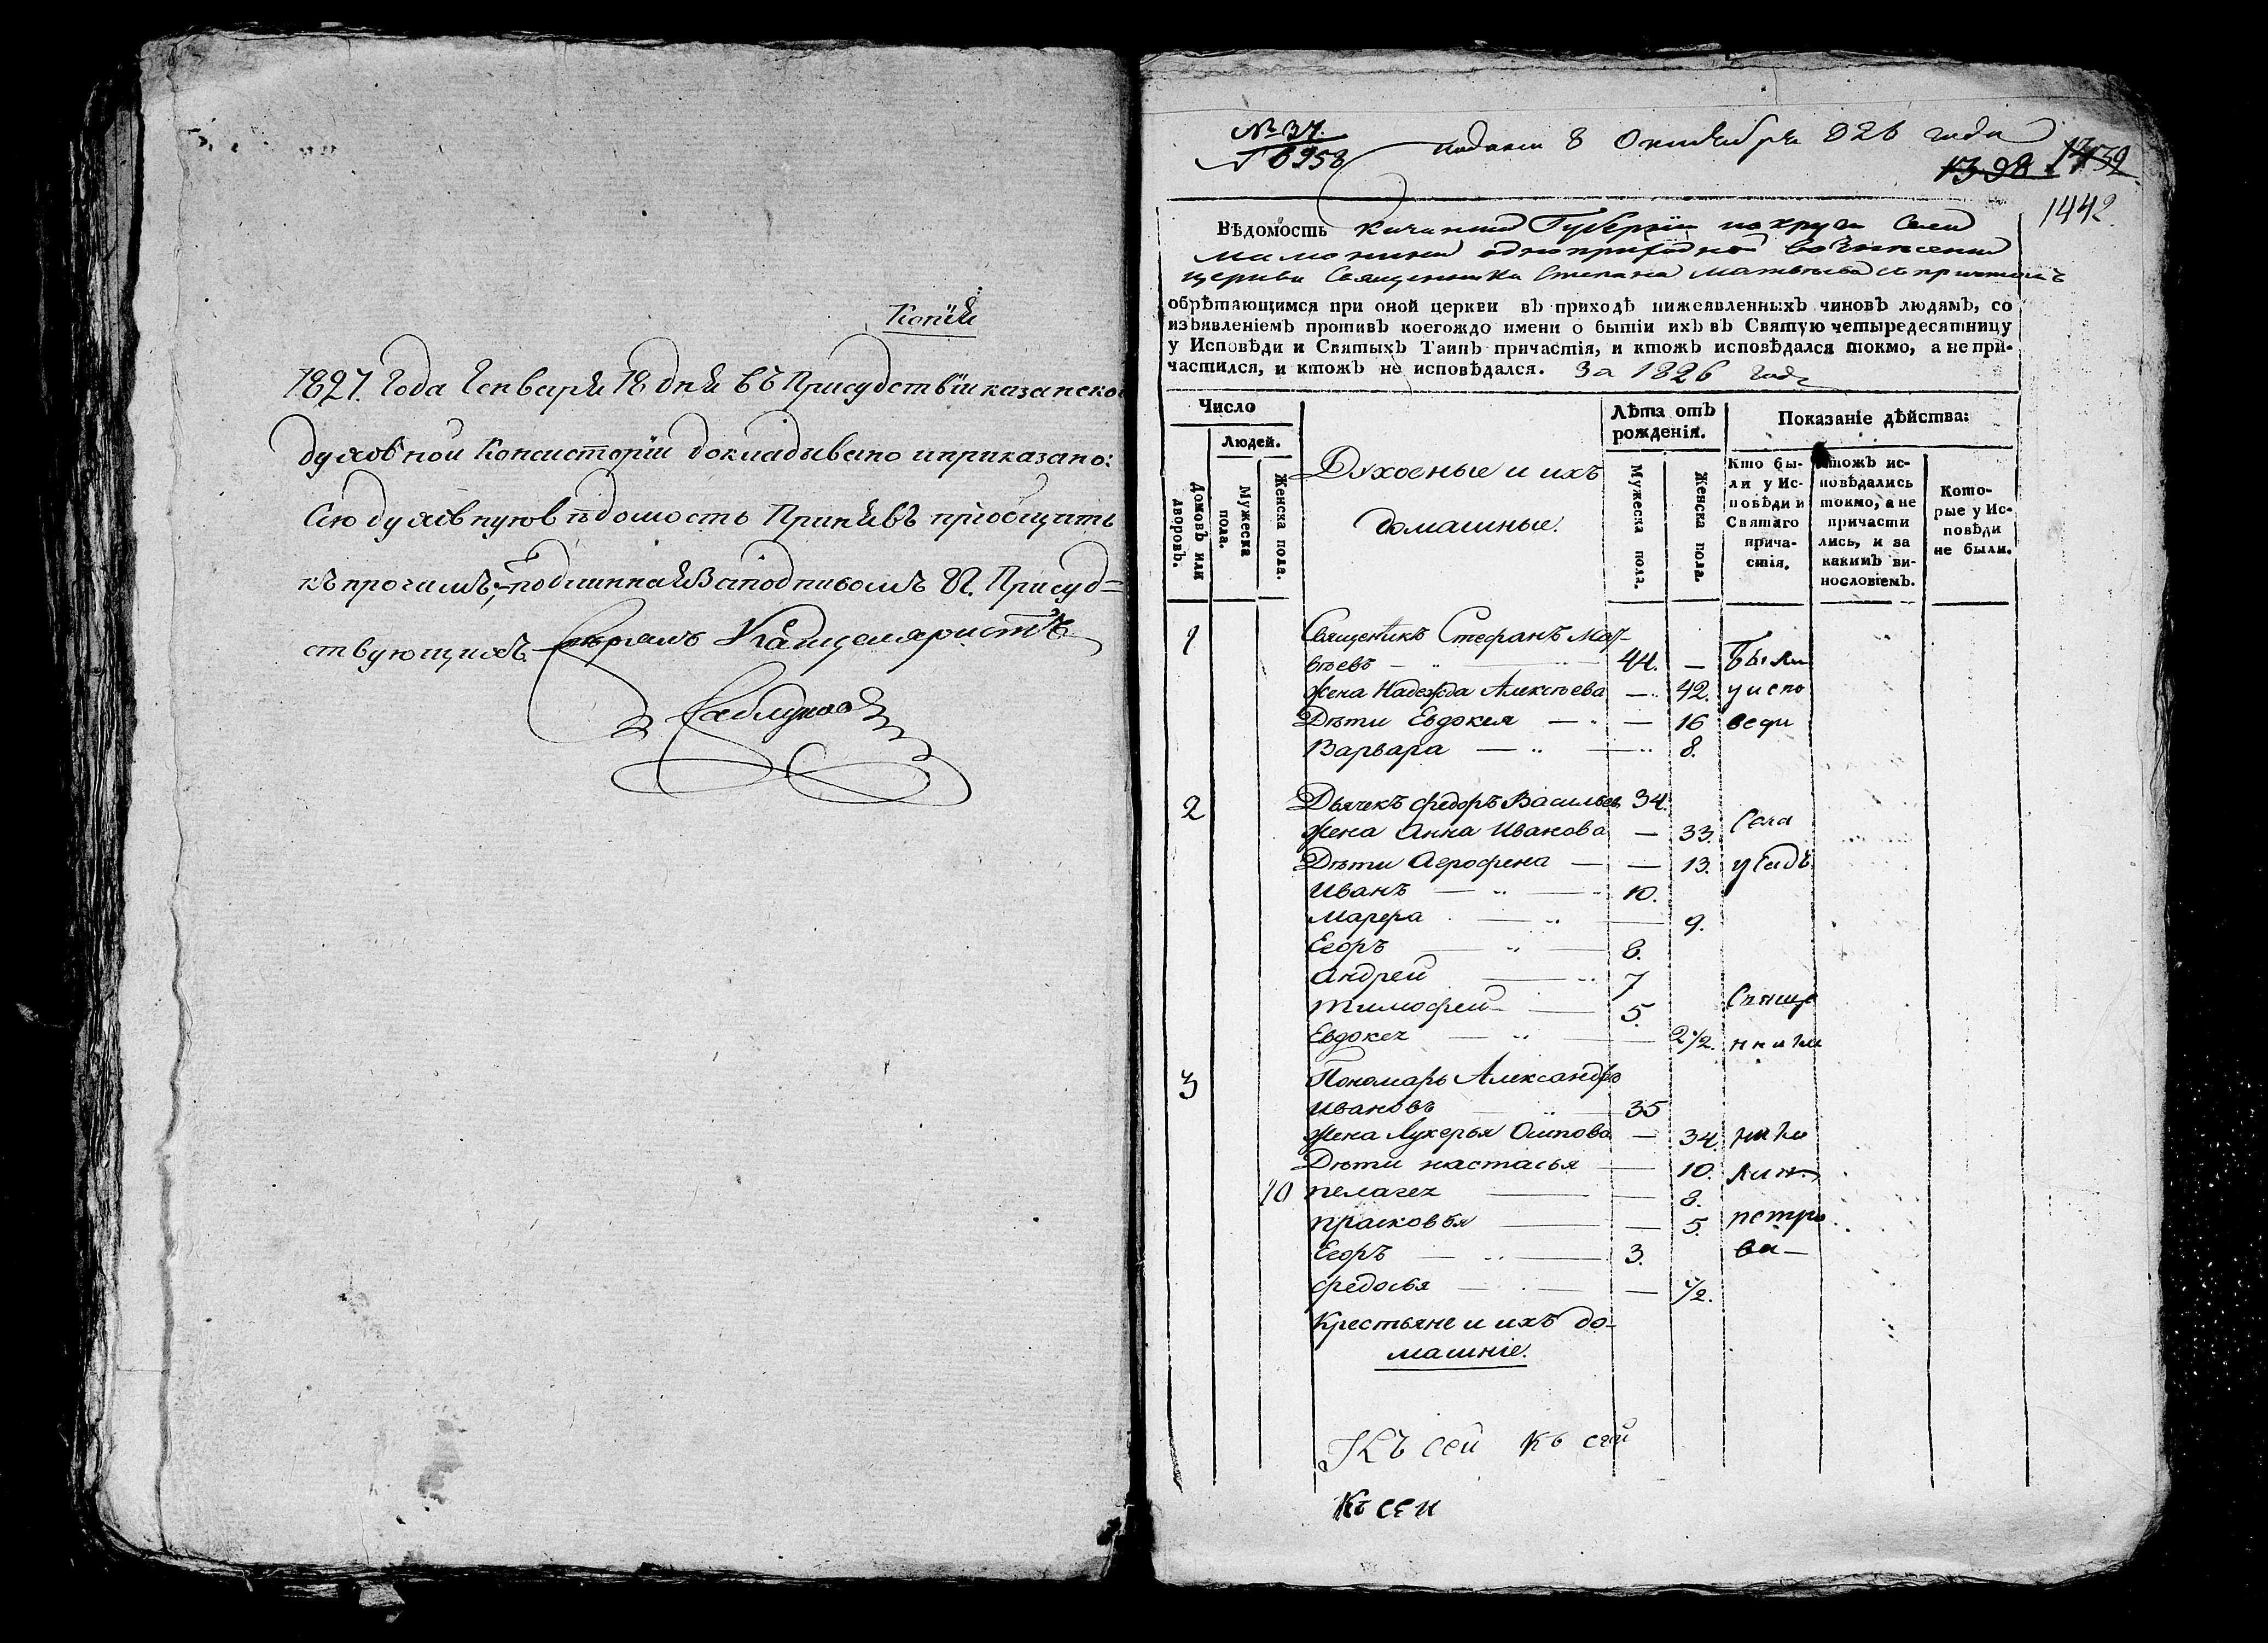 Копія
1827. Года Генваря 18 дня въ Присудствіи казанской
духовной Консисторіи докладывано и приказано:
Сію духовную вѣдомость Принявъ пріобщить
къ прочимъ, подлинная за подписомъ Гг. Присуд=
ствующихъ. Канцеляристъ
№ 37.
подана 8 Октября 826 года
1442
Вѣдомость Губерніи округи Села
одноприходной Вознесенской
церкви Священника Степана Матвѣева съ причтомъ
обрѣтающимся при оной церкви въ приходѣ нижеявленныхъ чиновъ людямъ, со
изъявленіемъ противъ коегождо имени о бытіи ихъ въ Святую четыредесятницу
у Исповѣди и Святыхъ Таинъ причастія, и ктожъ исповѣдался токмо, а не при-
частился, и ктожъ не исповѣдался. За 1826 годъ
Число
Людей.
Домовъ или дворовъ.
Мужеска пола.
Женска пола.
Духовные и ихъ
домашные.
Лѣта отъ
рожденія.
Мужеска пола.
Женска пола.
Показаніе дѣйства:
Кто бы-
ли у Ис-
повѣди и
Святаго
прича-
стія.
Ктожъ ис-
повѣдались
токмо, а не
причасти
лись, и за
какимъ ви-
нословіемъ.
Кото-
рые у Ис-
повѣди
не были.
1 Священникъ Стефанъ Мат-
вѣевъ 44. — Были
Жена Надежда Алексѣева — 42. у испо
Дѣти Евдокея — 16 веди
Варвара — 8.
2 Дьячекъ Федоръ Васильев 34.
Жена Анна Иванова — 33. Села
Дѣти Агрофена — 13.
Иванъ — 10.
Марфа — 9.
Егоръ — 8.
Андрей — 7
Тимофей — 5. Свяще
Евдокея — 2 1/2. нника
3 Пономарь Александръ
Ивановъ — 35
Жена Лукерья Осипова — 34.
Дѣти настасья — 10.
10 пелагея — 8.
прасковья — 5. петро
Егоръ — 3. ва —
федосья — 1/2.
Крестьяне и ихъ до-
машніе.
Къ сей къ сей
Къ сеи